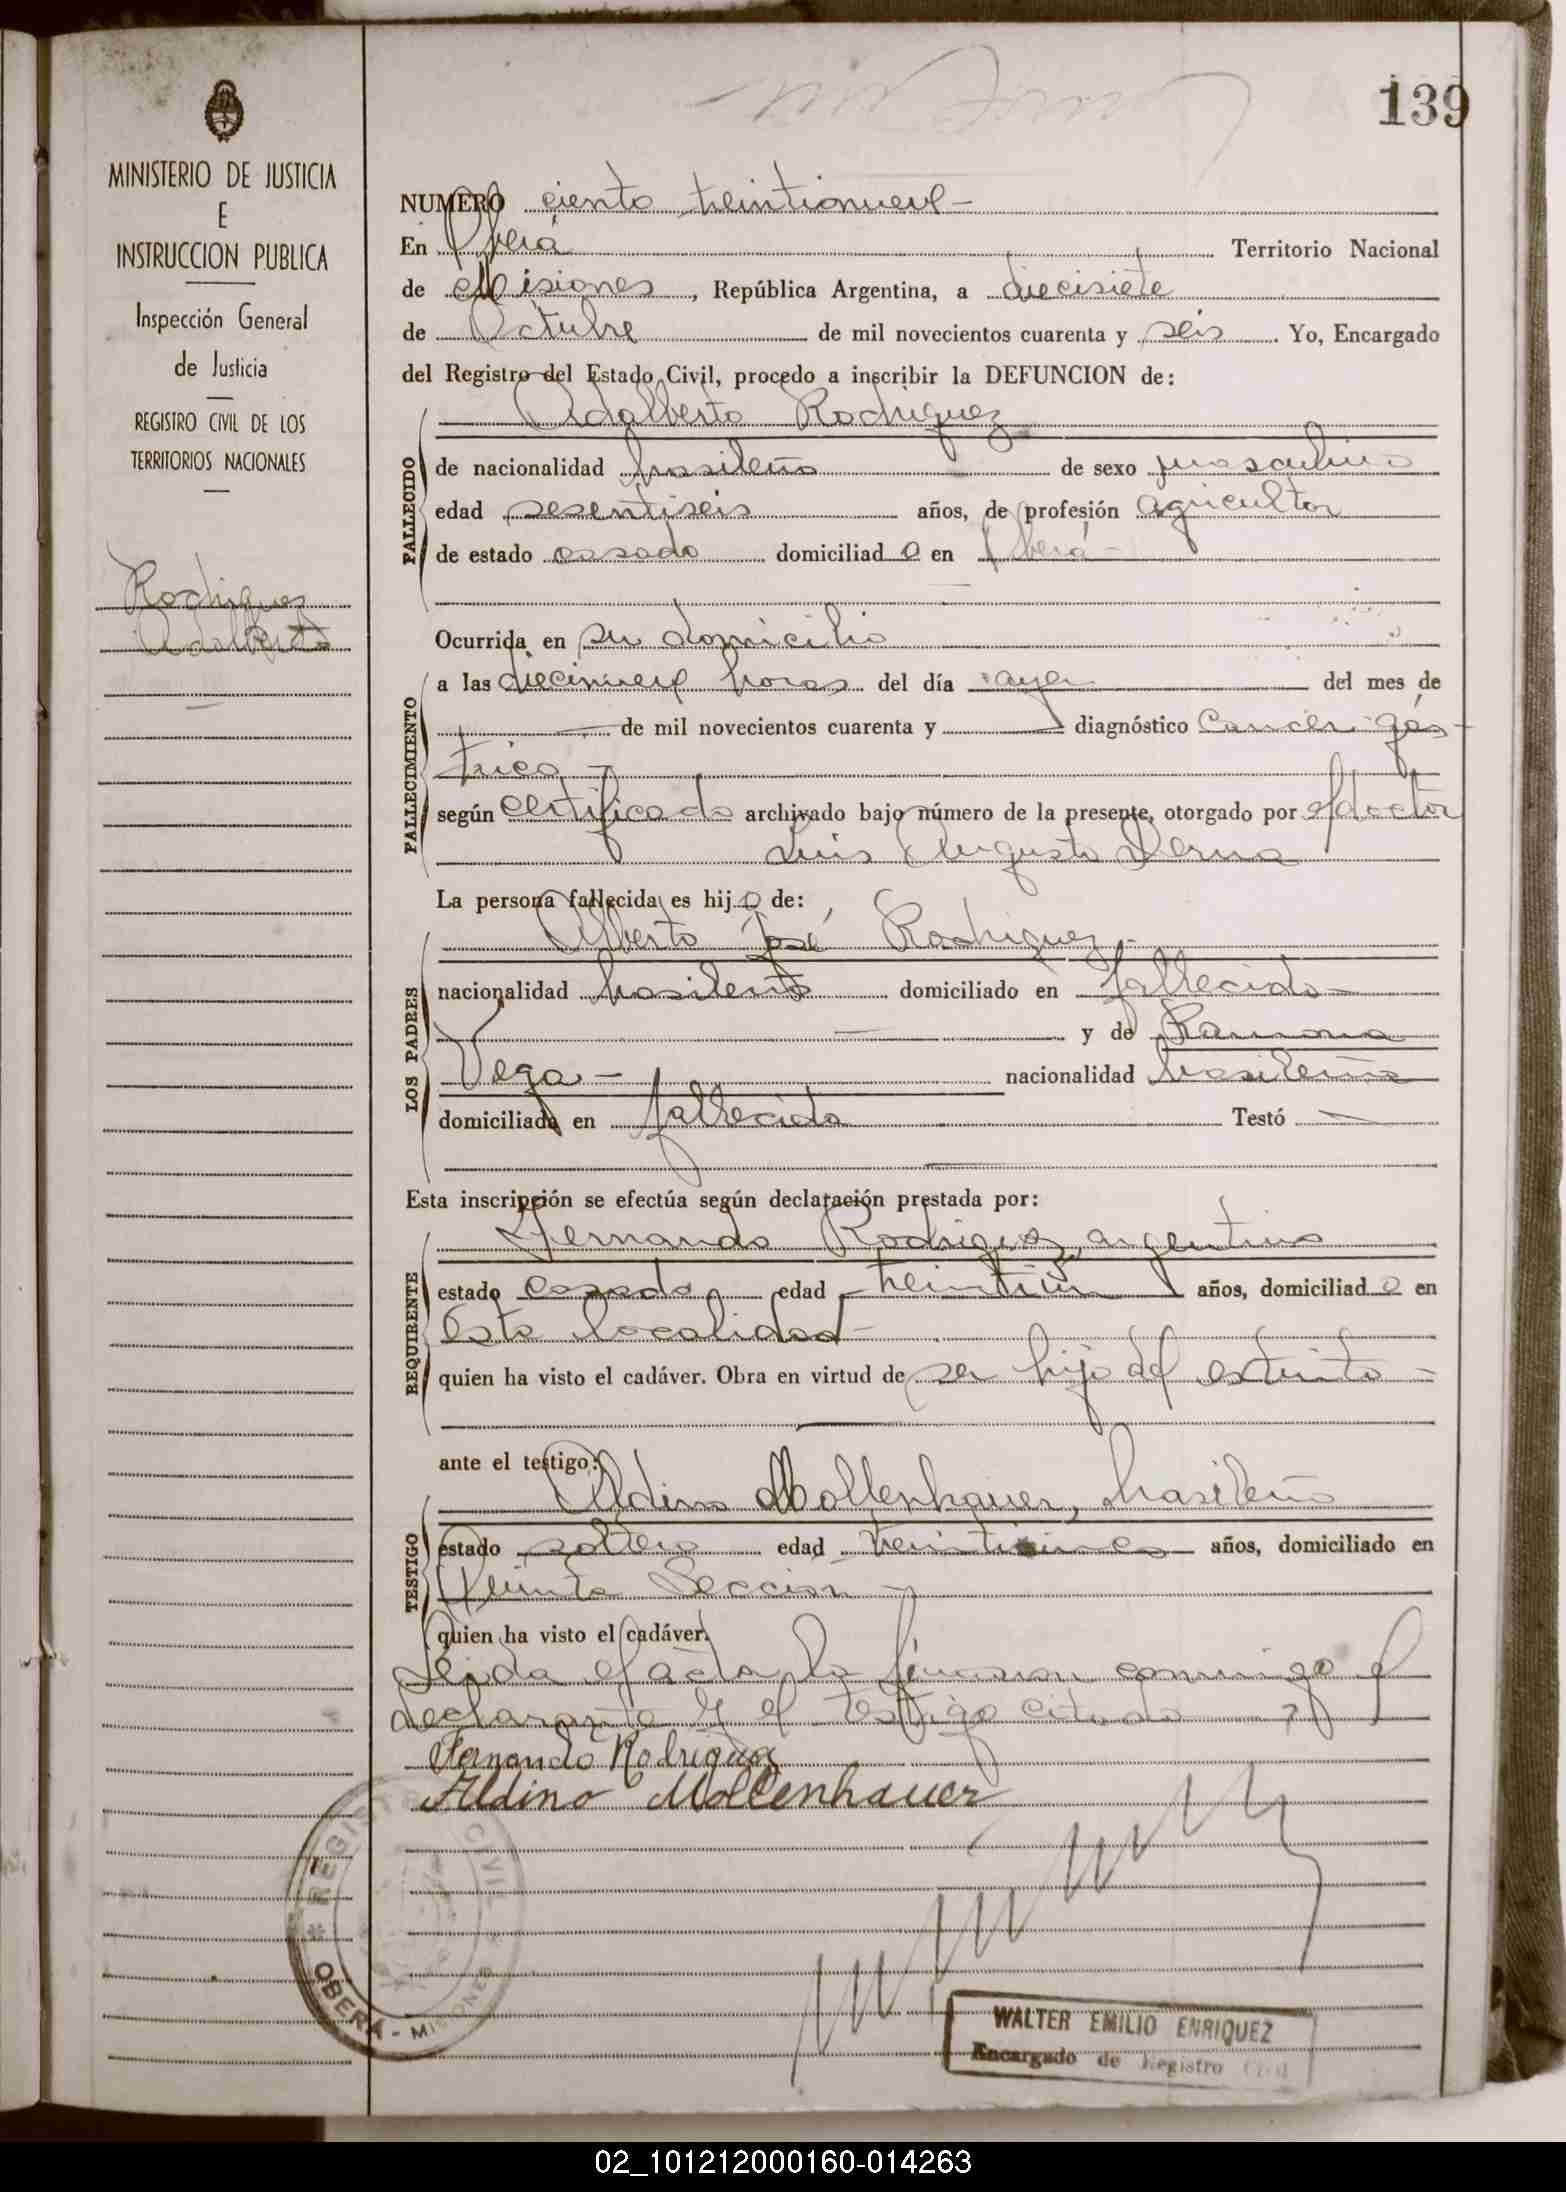 139
MINISTERIO DE JUSTICIA
E
INSTRUCCION PUBLICA
Inspección General
de Justicia
REGISTRO CIVIL DE LOS
TERRITORIOS NACIONALES
Rodriguez
Adalberto
NUMERO ciento treintionueve -
En Oberá Territorio Nacional
de Misiones, República Argentina, a diecisiete
de Octubre de mil novecientos cuarenta y seis. Yo, Encargado
del Registro del Estado Civil, procedo a inscribir la DEFUNCION de:
Adalberto Rodriguez
FALLECIDO
de nacionalidad brasileño de sexo masculino
edad sesentiseis años, de profesión agricultor
de estado casado domiciliado en Oberá -
Ocurrida en su domicilio
FALLECIMIENTO
a las diecinueve horas del día ayer del mes de
de mil novecientos cuarenta y diagnóstico Cancer gás-
trico -
según certificado archivado bajo número de la presente, otorgado por el doctor
Luis Augusto Derna
La persona fallecida es hijo de:
LOS PADRES
Alberto José Rodriguez -
nacionalidad brasileño domiciliado en fallecido -
y de Ramona
Vega - nacionalidad brasileña
domiciliada en fallecida Testó
Esta inscripción se efectúa según declaración prestada por:
REQUIRENTE
Fernando Rodriguez, argentino
estado casado edad treintiún años, domiciliado en
esta localidad -
quien ha visto el cadáver. Obra en virtud de ser hijo del extinto -
ante el testigo:
TESTIGO
Aldino Mollenhauer, brasileño
estado soltero edad años, domiciliado en
Quinta Seccion -
quien ha visto el cadáver.
Leida el acta, la firman conmigo el
declarante y el testigo citado
Fernando Rodriguez
Aldino Mollenhauer
REGISTRO CIVIL
OBERÁ - MISIONES
WALTER EMILIO ENRIQUEZ
Encargado de Registro Civil
02_101212000160-014263